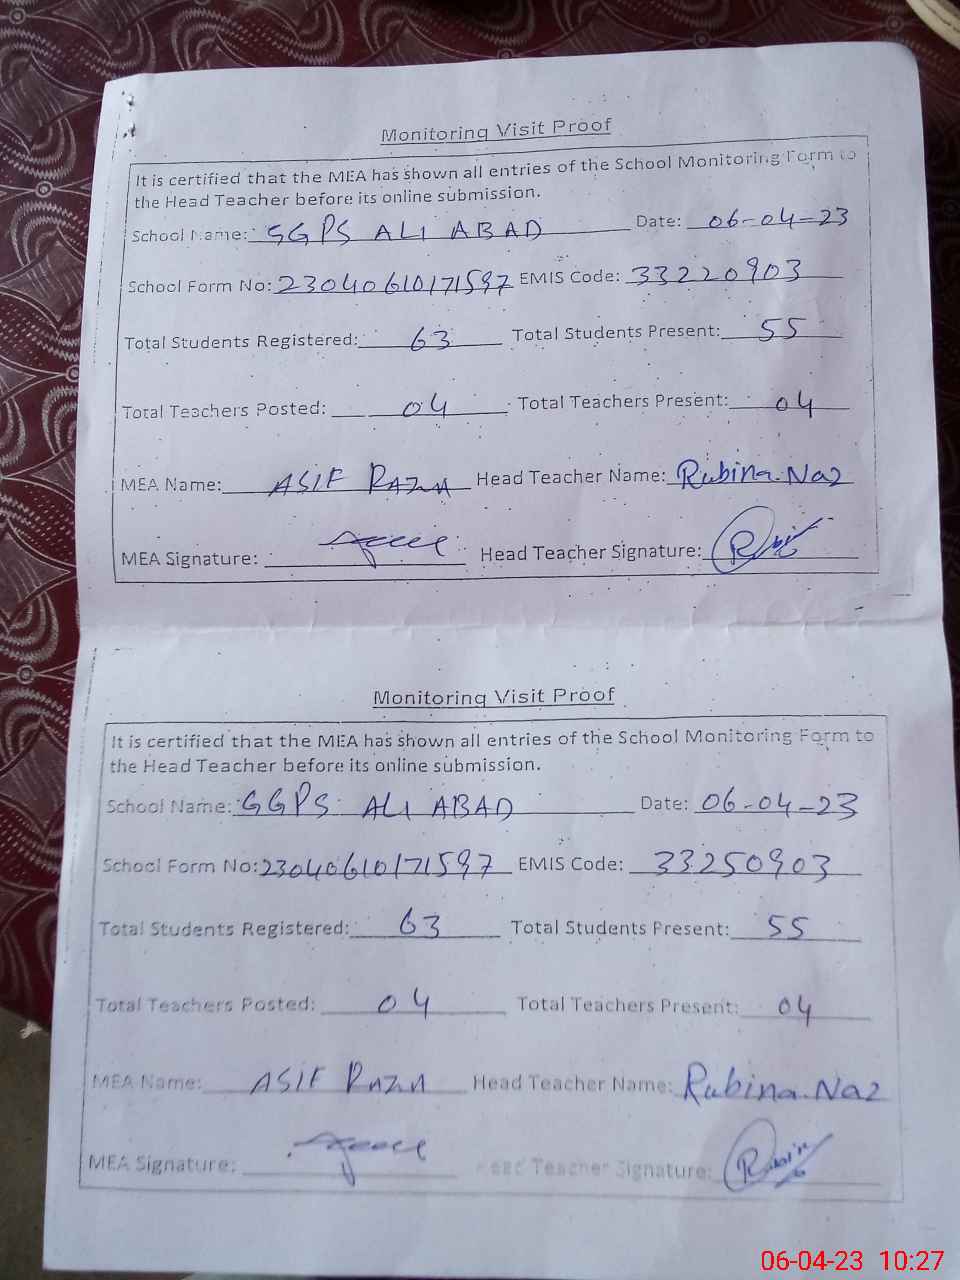 Monitoring Visit Proof
It is certified that the MEA has shown all entries of the School Monitoring Form to
the Head Teacher before its online submission.
School Name: GGPS ALI ABAD Date: 06-04-23
School Form No: 23040610171597 EMIS Code: 33220903
Total Students Registered: 63 Total Students Present: 55
Total Teachers Posted: 04 Total Teachers Present: 04
MEA Name: ASIF RAZA Head Teacher Name: Rubina Naz
MEA Signature: Head Teacher Signature:
Monitoring Visit Proof
It is certified that the MEA has shown all entries of the School Monitoring Form to
the Head Teacher before its online submission.
School Name: GGPS ALI ABAD Date: 06-04-23
School Form No: 23040610171597 EMIS Code: 33250903
Total Students Registered: 63 Total Students Present: 55
Total Teachers Posted: 04 Total Teachers Present: 04
MEA Name: ASIF RAZA Head Teacher Name: Rubina Naz
MEA Signature: Head Teacher Signature:
06-04-23 10:27